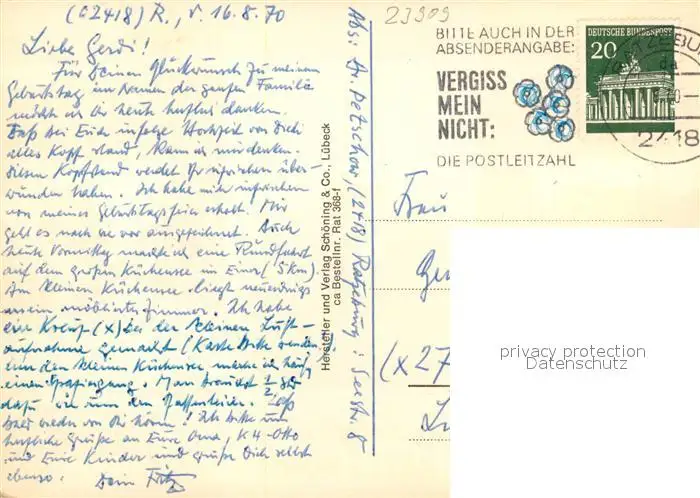 (2418) R., d. 16.8.70
Liebe Gerdi!
Für Deinen Glückwunsch zu meinem
Geburtstag im Namen der ganzen Familie
möchte ich Dir heute herzlich danken.
Daß bei Euch infolge Hochzeit von
alles Kopf stand, kann ich mir denken.
Diesen Kopfstand werdet Ihr inzwischen über-
wunden haben. Ich habe mich inzwischen
von meiner Geburtstagsfeier erholt. Mir
geht es nach wie vor ausgezeichnet. Auch
heute Vormittag machte ich eine Rundfahrt
auf dem großen Küchensee im Einer (5 km).
Am kleinen Küchensee liegt neuerdings
unser möbliertes Zimmer. Ich habe
ein Kreuz (x) bei der kleinen Luft-
aufnahme gemacht (Karte bitte wenden!).
Um den kleinen Küchensee mache ich häufig
einen Spaziergang. Man braucht 1/2
dafür wie um den
bald wieder von Dir hören! Ich bitte um
herzliche Grüße an Eure Oma, K 4-Otto
und Eure Kinder und grüße Dich selbst
ebenso. Dein Fritz
Abs: Dr. Petschow, (2418) Ratzeburg, Seestr. 8
Hersteller und Verlag Schöning & Co., Lübeck
ca Bestellnr. Rat 368-f
23909
BITTE AUCH IN DER
ABSENDERANGABE:
VERGISS
MEIN
NICHT:
DIE POSTLEITZAHL
DEUTSCHE BUNDESPOST
20
2418
Frau
(x27
privacy protection
Datenschutz